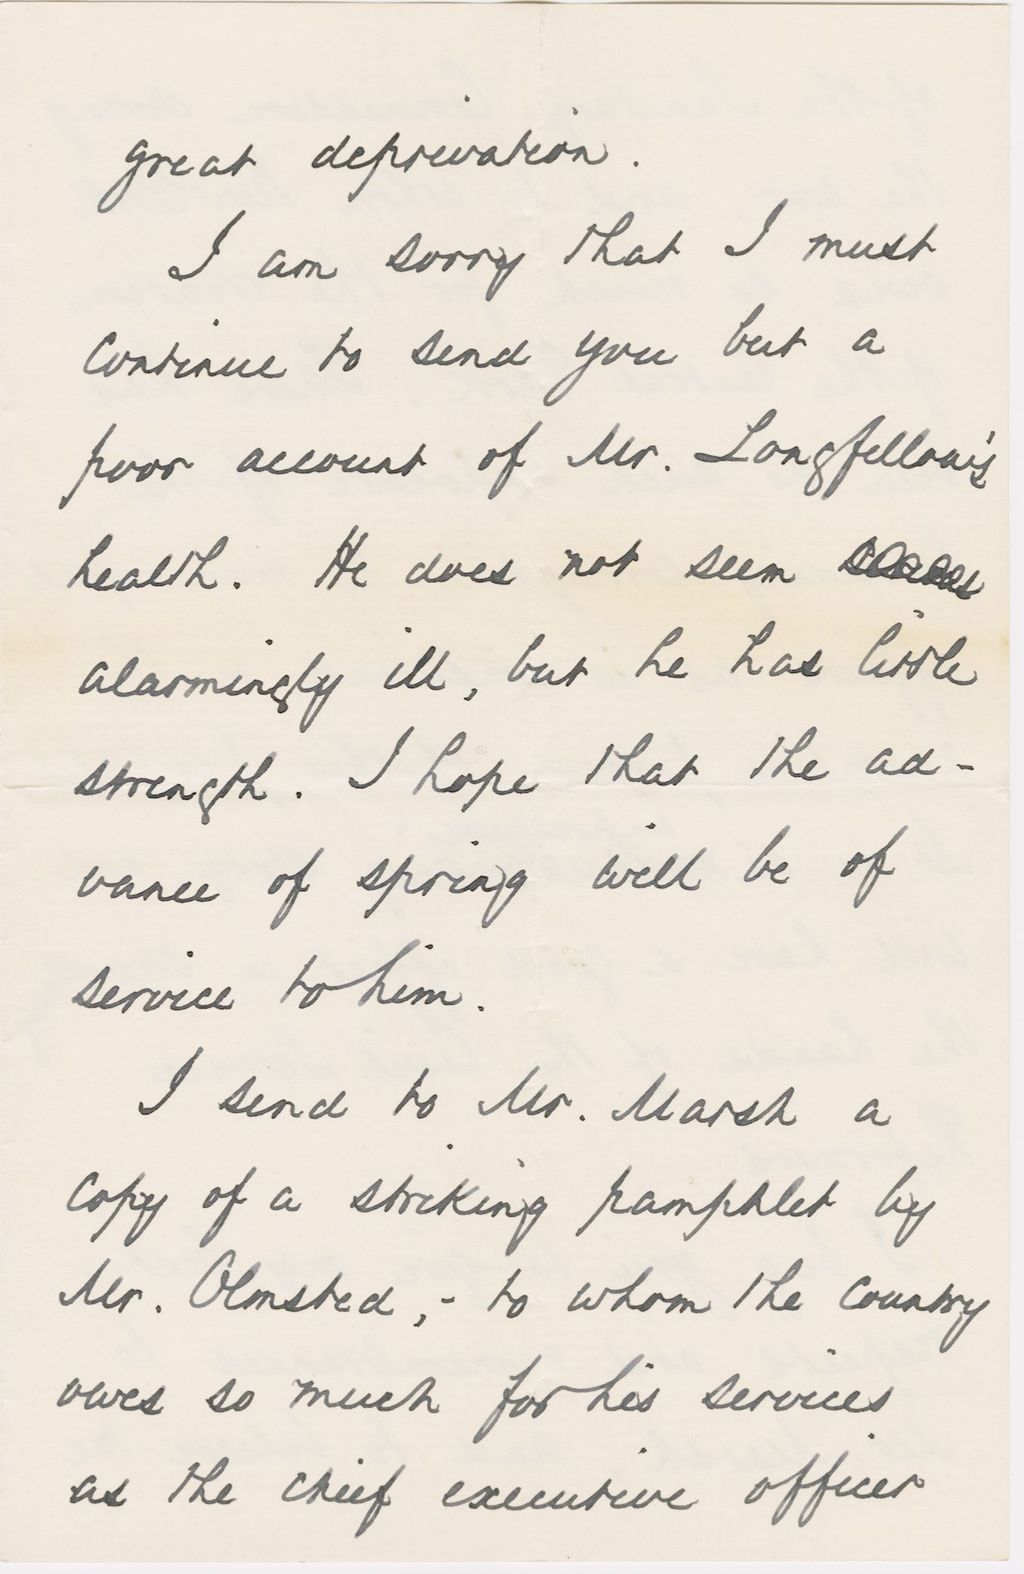 great deprivation.
I am sorry that I must
continue to send you but a
poor account of Mr. Longfellow's
health. He does not seem
alarmingly ill, but he has little
strength. I hope that the ad-
vance of spring will be of
service to him.
I send to Mr. Marsh a
copy of a striking pamphlet by
Mr. Olmsted,- to whom the country
owes so much for his services
as the chief executive officer